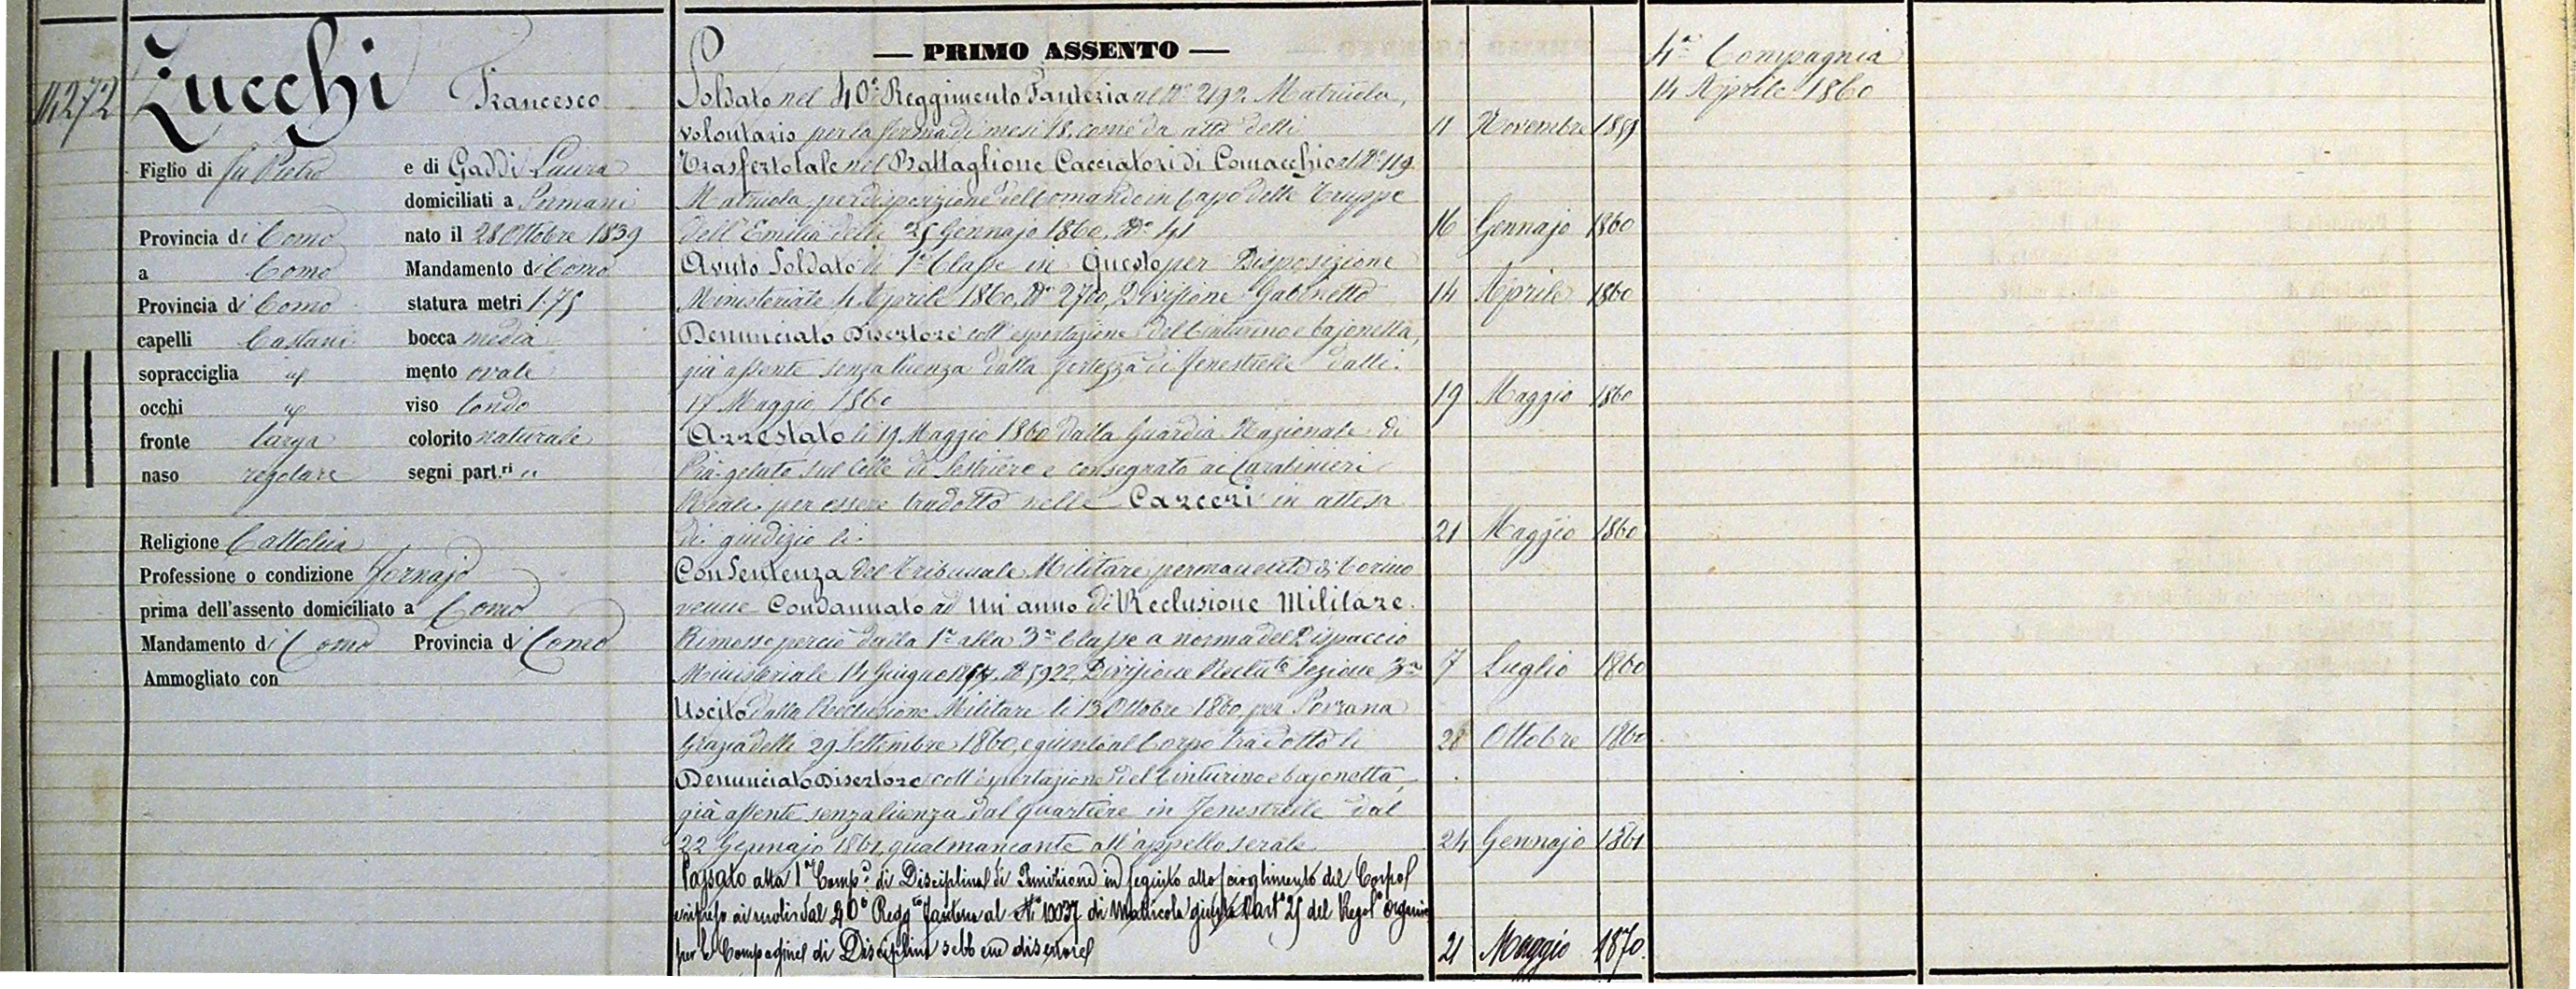 14272
Zucchi Francesco
Figlio di fu Pietro e di Gaddi Luira
domiciliati a
Provincia di Como nato il 28 Ottobre 1839
a Como Mandamento di Como
Provincia di Como statura metri 1:75
capelli Castani bocca media
sopracciglia mento ovale
occhi viso tondo
fronte larga colorito naturale
naso regolare segni part.ri "
Religione Cattolica
Professione o condizione Fornajo
prima dell'assento domiciliato a Como
Mandamento di Como Provincia di Como
Ammogliato con
— PRIMO ASSENTO —
Soldato nel 40° Reggimento Fanteria al N° 2192 Matricola,
volontario per la ferma di mesi 18, come da atto delli 11 Novembre 1859
Trasfertotale nel Battaglione Cacciatori di Comacchio al N° 119
Matricola per disposizione del Comando in Capo delle Truppe
dell'Emilia delli 25 Gennajo 1860, N° 41 16 Gennajo 1860
Avuto Soldato di 1a Classe in Questo per Disposizione
Ministeriale 4 Aprile 1860, N° 2700, Divisione Gabinetto 14 Aprile 1860
Denunciato Disertore coll'esportazione del Cinturino e bajonetta,
già assente senza licenza dalla fortezza di Fenestrelle dalli
17 Maggio 1860 19 Maggio 1860
Arrestato li 19 Maggio 1860 dalla Guardia Nazionale di
Pragelato sul Colle di Sestriere e consegnato ai Carabinieri
Reali per essere tradotto nelle Carceri in attesa
di giudizio li 21 Maggio 1860
Con Sentenza del Tribunale Militare permanente di Torino
venne Condannato ad Un'anno di Reclusione Militare.
Rimosso perciò dalla 1a alla 3a Classe a norma del Dispaccio
Ministeriale 14 Giugno N 5922, Divisione Sezione 3a 7 Luglio 1860
Uscito dalla Reclusione Militare li 13 Ottobre 1860 per Sovrana
Grazia delli 29 Settembre 1860, e giunto al Corpo tradotto li 28 Ottobre 1860
Denunciato Disertore coll'esportazione del Cinturino e bajonetta,
già assente senza licenza dal quartiere in Fenestrelle dal
22 Gennajo 1861, qual mancante all'appello serale 24 Gennajo 1861
Passato alla 1a Comp.a di Disciplina di Punizione in seguito allo scioglimento del Corpo
ai ruoli dal 40° Regg.to Fanteria al N° 10037 di Matricola giusta l'art° 25 del Regol° organico
per le Compagnie di Disciplina sebbene disertore 21 Maggio 1870.
4a Compagnia
14 Aprile 1860